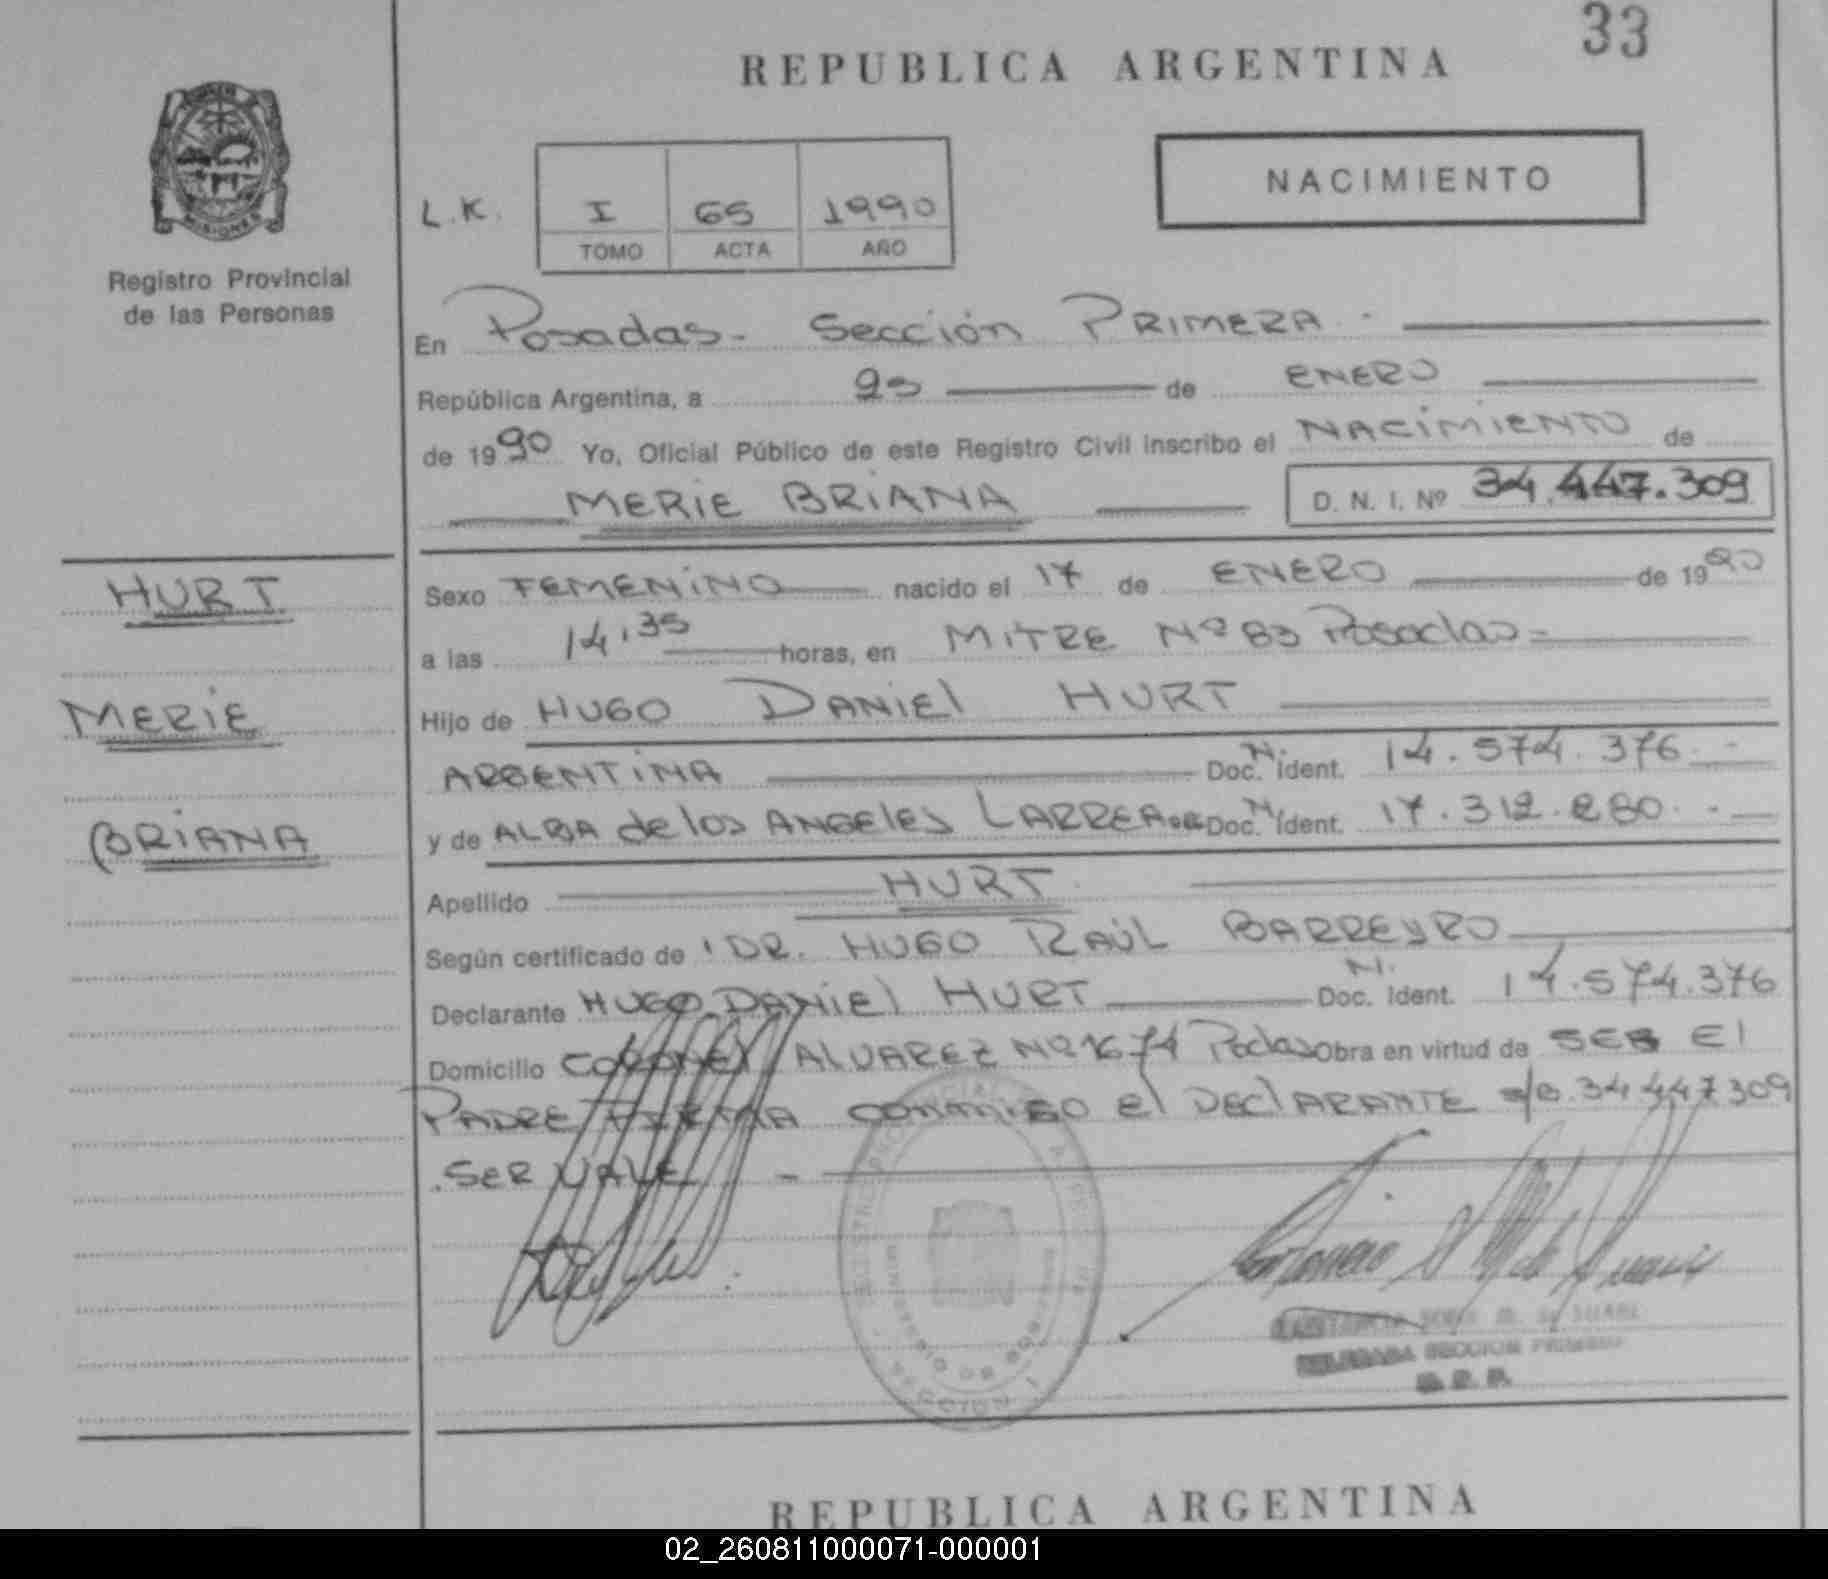 33
REPUBLICA ARGENTINA
NACIMIENTO
L.K. I 65 1990
TOMO ACTA AÑO
MISIONES
Registro Provincial
de las Personas
En Posadas - Sección PRIMERA -
República Argentina, a 23 de ENERO
de 1990 Yo, Oficial Público de este Registro Civil inscribo el NACIMIENTO de
MERIE BRIANA D. N. I. Nº 34.447.309
HURT
MERIE
BRIANA
Sexo FEMENINO nacido el 17 de ENERO de 1990
a las 14,35 horas, en MITRE Nº 83 Posadas -
Hijo de HUGO DANIEL HURT
ARGENTINA Doc. N. Ident. 14.574.376 -
y de ALBA de los ANGELES LARREA Doc. N. Ident. 17.312.280 -
Apellido HURT
Según certificado de DR. HUGO RAÚL BARREYRO
Declarante HUGO DANIEL HURT N. Doc. Ident. 14.574.376
Domicilio CORONEL ALVAREZ Nº 1674 Pdas Obra en virtud de SER El
PADRE FIRMA CONMIGO el DEClARANTE s/b. 34 447 309
SER VALE -
DELEGADA SECCION PRIMERA
REPUBLICA ARGENTINA
02_260811000071-000001